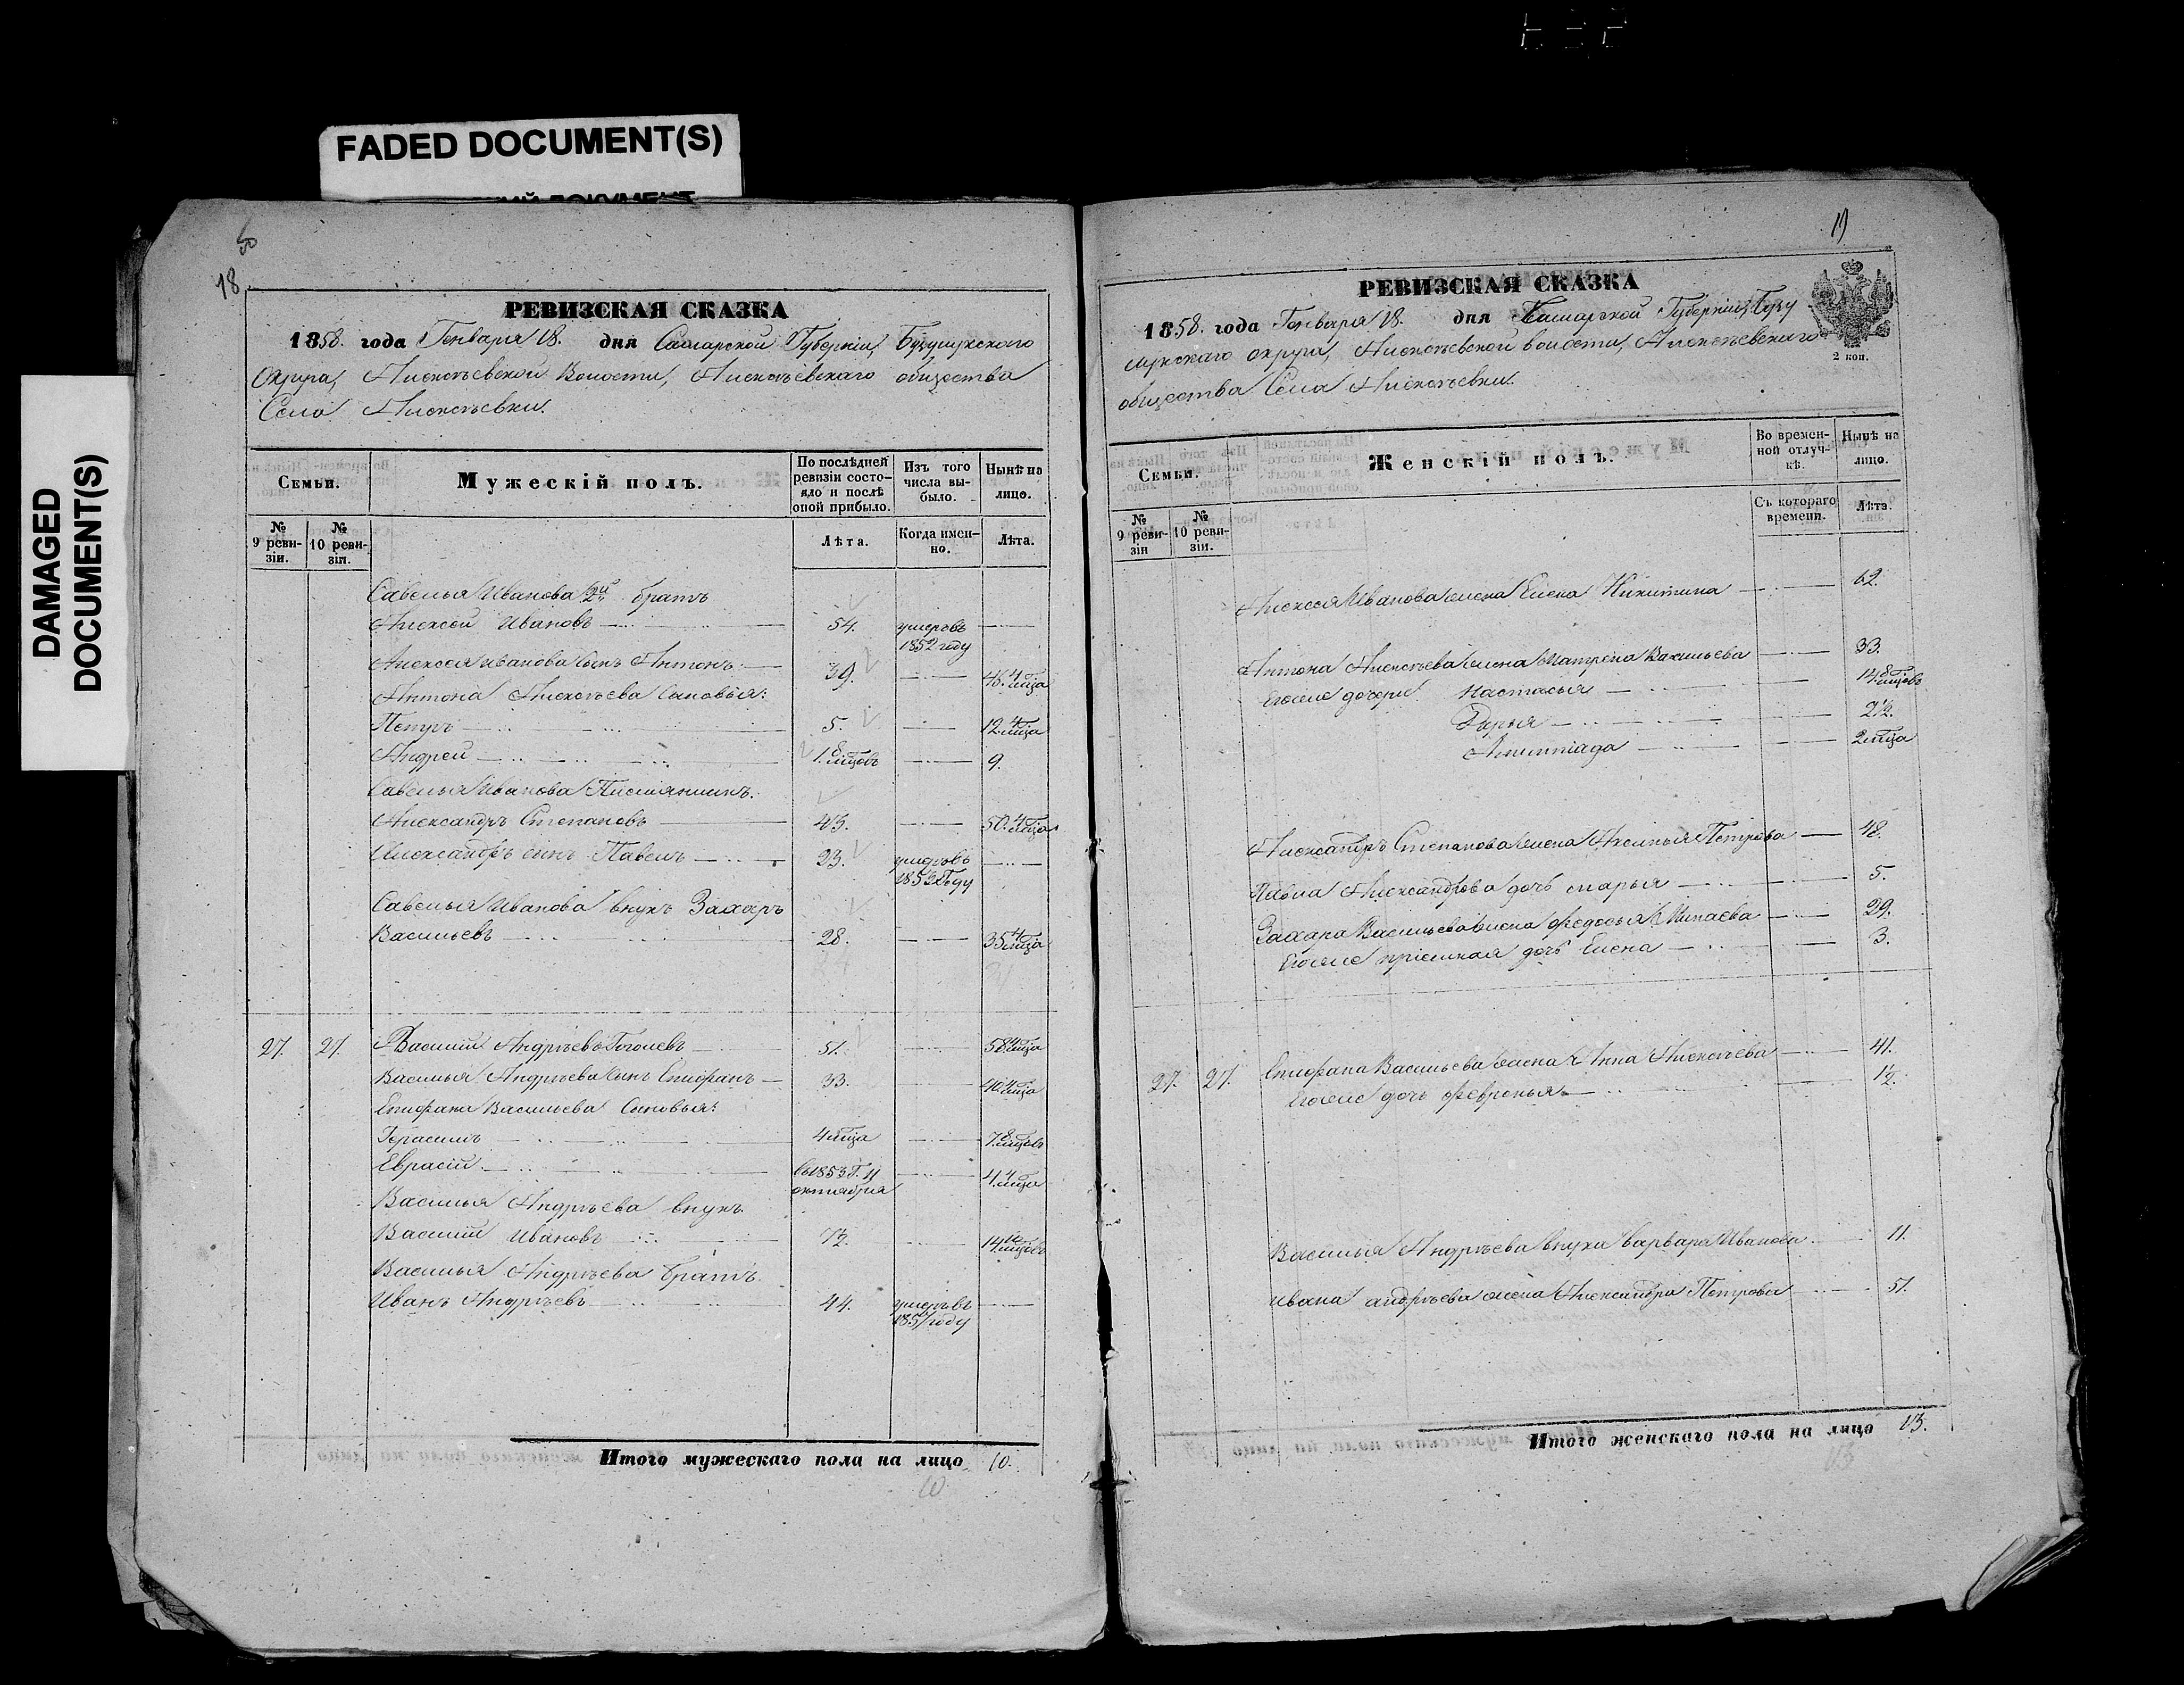 FADED DOCUMENT(S)
DAMAGED
DOCUMENT(S)
18
РЕВИЗСКАЯ СКАЗКА
1858. года Генваря 18. дня Самарской Губерніи, Бузулукскаго
Округа, Алексѣевской Волости, Алексѣевскаго общества
Села Алексѣевки.
Семьи.
Мужескій полъ.
По послѣдней ревизіи состояло и послѣ оной прибыло.
Изъ того числа выбыло.
Нынѣ на лицо.
№ 9 ревизіи.
№ 10 ревизіи.
Лѣта.
Когда именно.
Лѣта.
Савелья Иванова 2й братъ
Алексей Ивановъ 54. умеръ въ 1852 году
Алексея Иванова сынъ Антонъ 39. 46. 4 мѣца
Антона Алексѣева сыновья:
Петръ 5. 12. 4 мѣца
Андрей 1. 8 мѣцовъ 9.
Савелья Иванова Племянникъ
Александръ Степановъ 43. 50. 4 мѣца
Александръ сынъ Павелъ 23. умеръ въ 1853 году
Савелья Иванова внукъ Захаръ
Васильевъ 28. 35. 4 мѣца
27. 27. Василій Андрѣевъ Гоголевъ 51. 58. 4 мѣца
Василья Андрѣева сынъ Епифанъ 33. 40. 4 мѣца
Епифана Васильева Сыновья:
Герасимъ 4 мѣца 7. 8 мѣцовъ
Еврасій въ 1853 г. 11 октября 4. 4 мѣца
Василья Андрѣева внукъ
Василій Ивановъ 7½. 14. 10 мѣцовъ
Василья Андрѣева братъ
Иванъ Андрѣевъ 44. умеръ въ 1857 году
Итого мужескаго пола на лицо 10.
10.
19
РЕВИЗСКАЯ СКАЗКА
1858. года Генваря 18. дня Самарской Губерніи, Бузу
лукскаго округа, Алексѣевской волости, Алексѣевскаго
общества Села Алексѣевки.
2 коп.
Семьи.
Женскій полъ.
Во временной отлучкѣ.
Нынѣ на лицо.
№ 9 ревизіи
№ 10 ревизіи.
Съ котораго времени.
Лѣта.
Алексея Иванова жена Елена Никитина 62.
Антона Алексѣева жена Матрена Васильева 33.
Егоже дочери Настасья 14. 8 мѣцовъ
Дарья 2½.
2 мѣца
Александръ Степанова жена Аксинья Петрова 48.
Павла Александрова дочь Марья 5.
Захара Васильева жена Федосья 29.
Егоже пріемная дочь Елена 3.
27. 27. Епифана Васильева жена Анна Алексѣева 41.
Егоже дочь Февронья 12.
Василья Андрѣева внука Варвара Иванова 11.
Ивана Андрѣева жена Александра Петрова 51.
Итого женскаго пола на лицо 13.
13